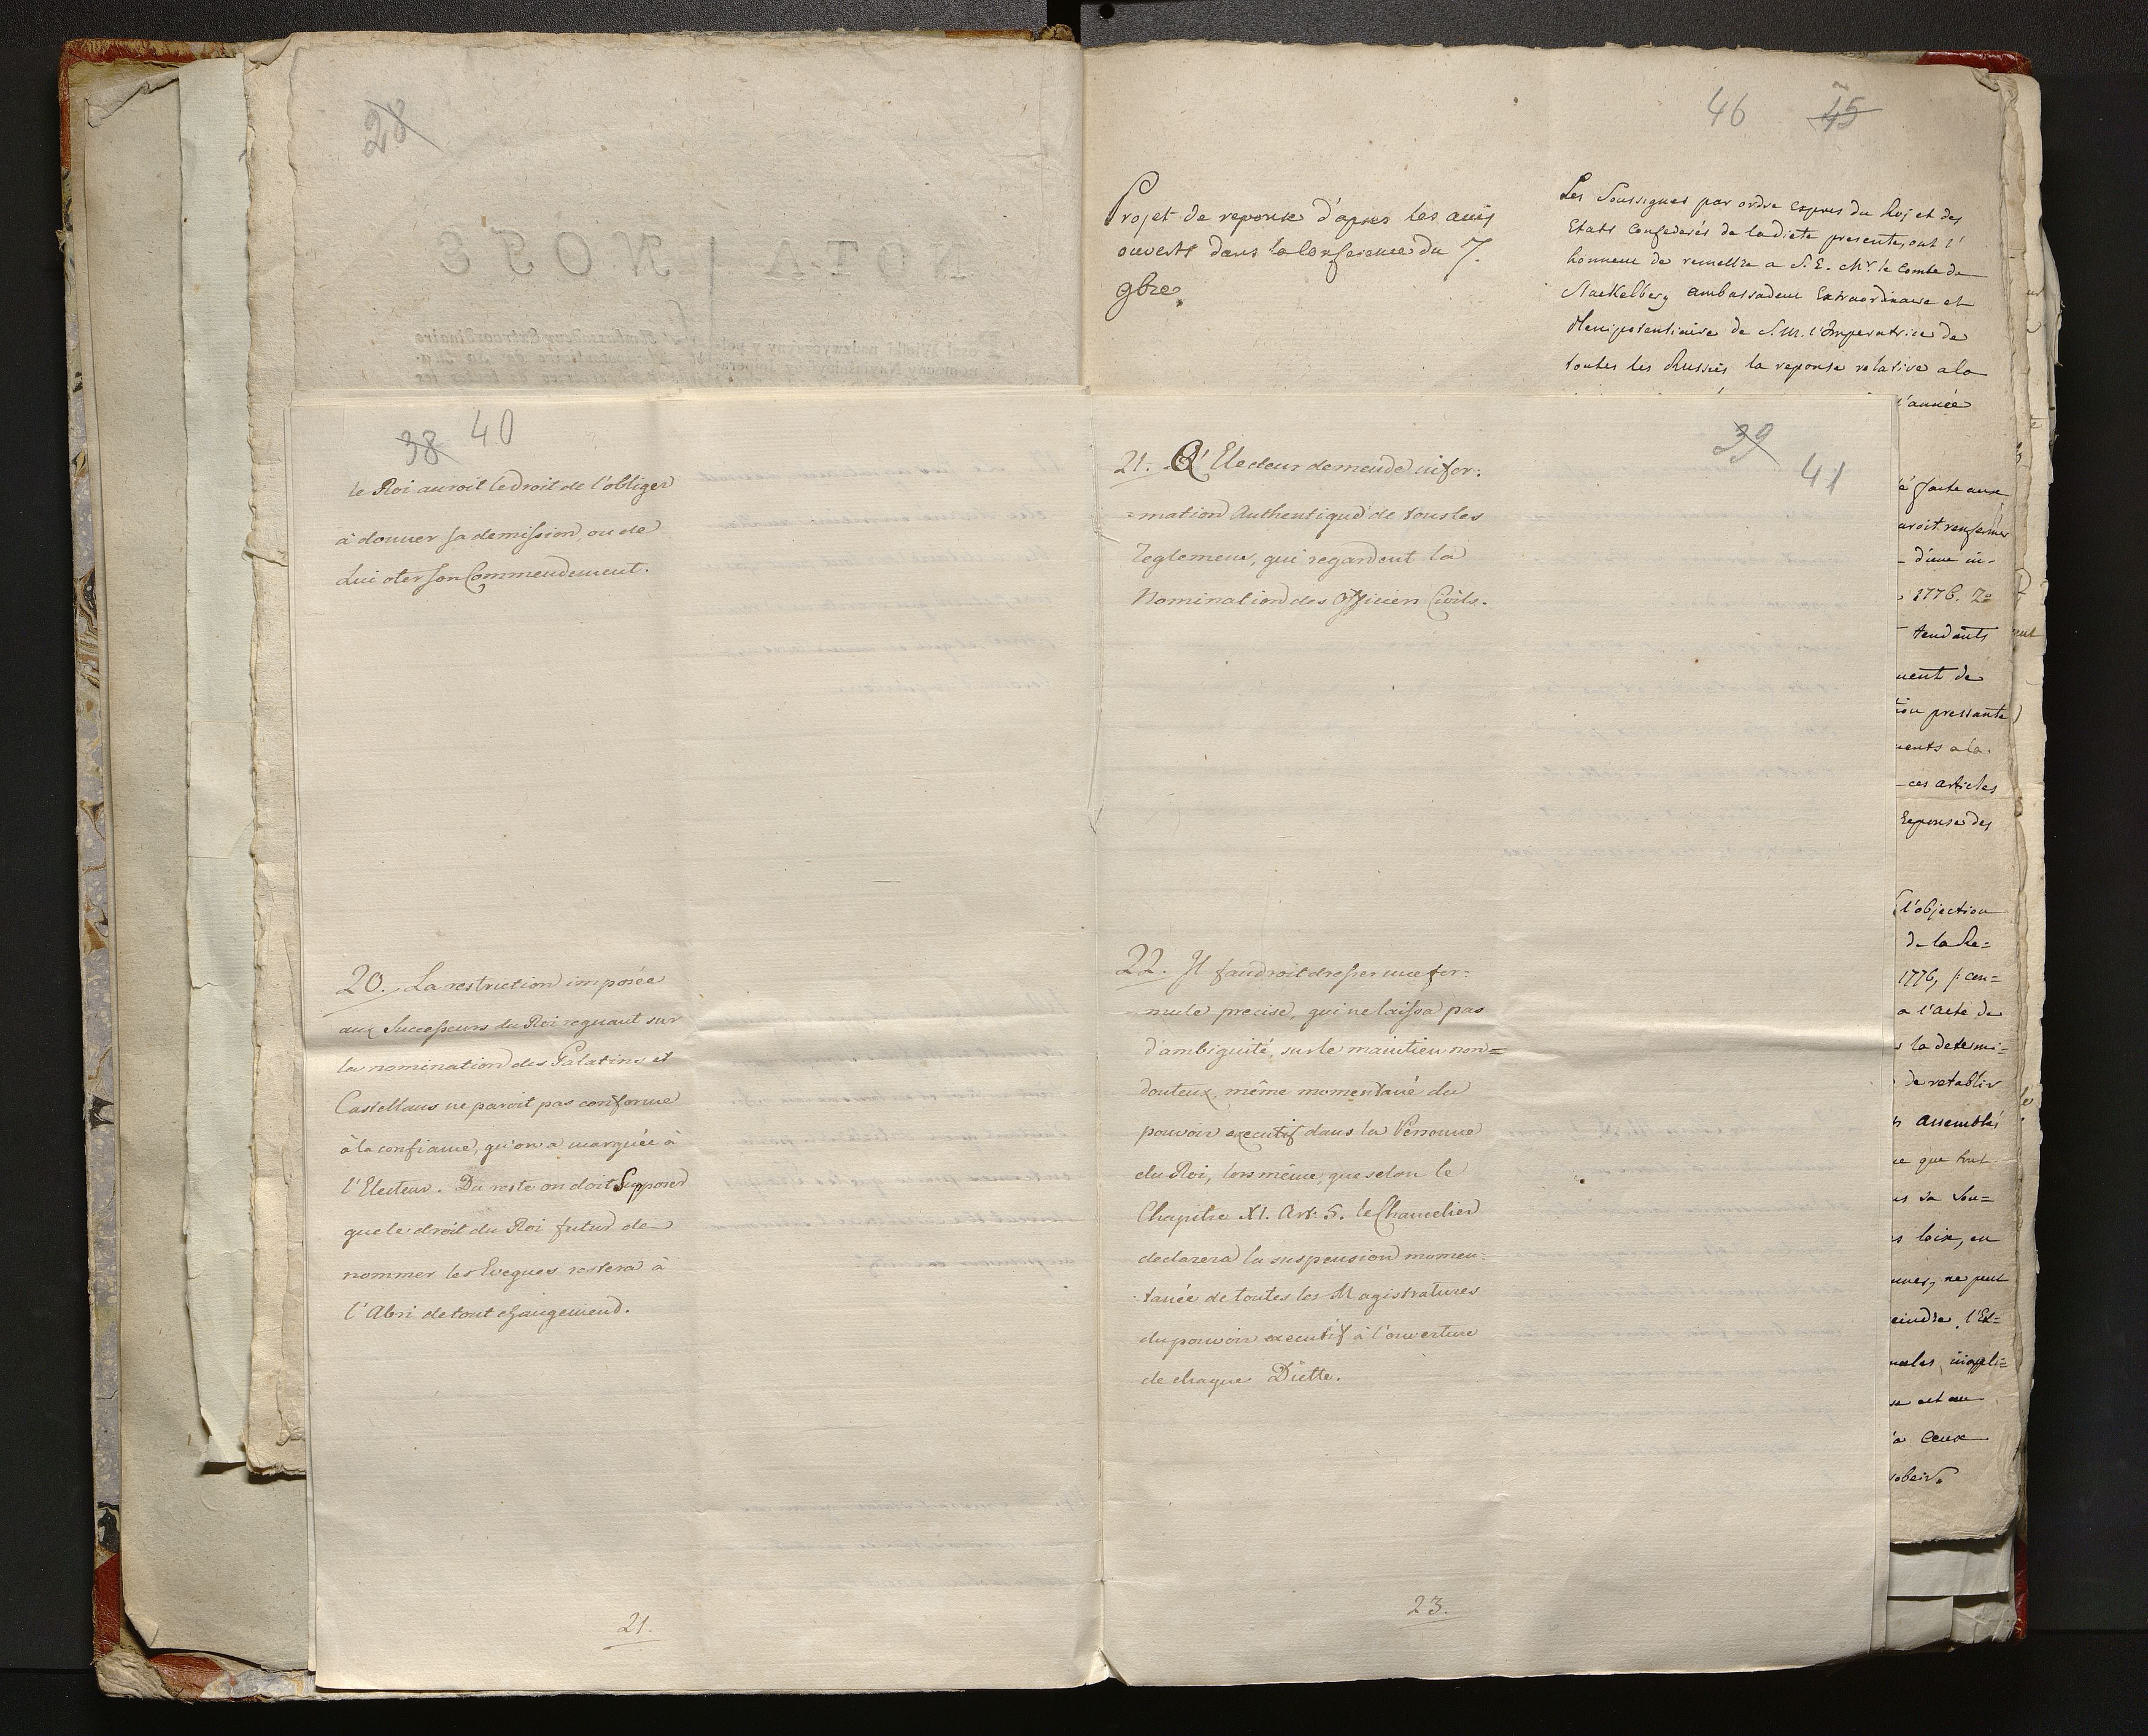 28
46 45
Projet de reponse d'apres les avis
ouverts dans la Conference du 7.
9bre.
Les Soussignes par ordre expres du Roj et des
Etats Confederés de la diete presente, ont l'
honneur de remettre a S. E. Mr. le Comte de
Stackelberg ambassadeur Extraordinaire et
Plenipotentiaire de S. M. l'Imperatrice de
toutes les Russies la reponse relative a la
l'année
38 40
le Roi auroit le droit de l'obliger
à donner sa demission, ou de
Lui oter son Commendement.
20. La restriction imposée
aux Successeurs du Roi regnant sur
la nomination des Palatins et
Castellans ne paroit pas conforme
à la confiance, qu'on a marquée à
l'Electeur. Du reste on doit Supposer
que le droit du Roi futur de
nommer les Eveques restera à
l'Abri de tout changement.
21.
39
41
21. L'Electeur demende infor:
=mation Authentique de tous les
Reglemens, qui regardent la
Nomination des Officiers Civils.
22. Il faudroit dresser une for=
mule precise, qui ne laissa pas
d'ambiguité, sur le maintien non=
douteux, même momentané du
pouvoir executif dans la Personne
du Roi, lors même, que selon le
Chapitre XI. Art: 5. le Chancelier
declarera la suspension momen:
:tanée de toutes les Magistratures
du pouvoir executif à l'ouverture
de chaque Diette.
23.
é faite aux
avoit renfermer
d'une in-
1776. 2=
tendants
ment de
tion pressante
ments a la
ces articles
Reponse des
l'objection
de la Re=
1776, /: con=
a l'acte de
la determi=
de retablir
assemblés
que tout
sa Sou=
loix, en
ne peut
eindre, l'Et=
à Ceux
obeir.